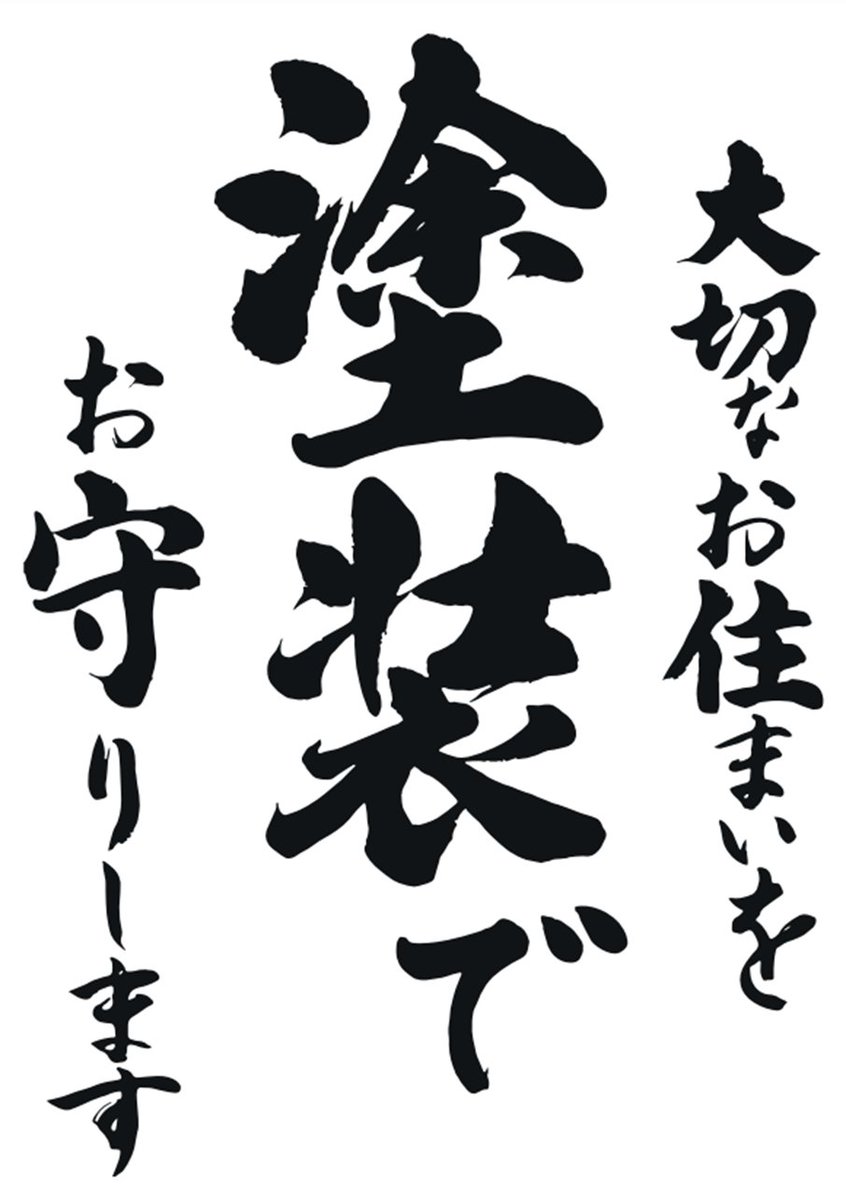 大切なお住まいを
塗装で
お守りします